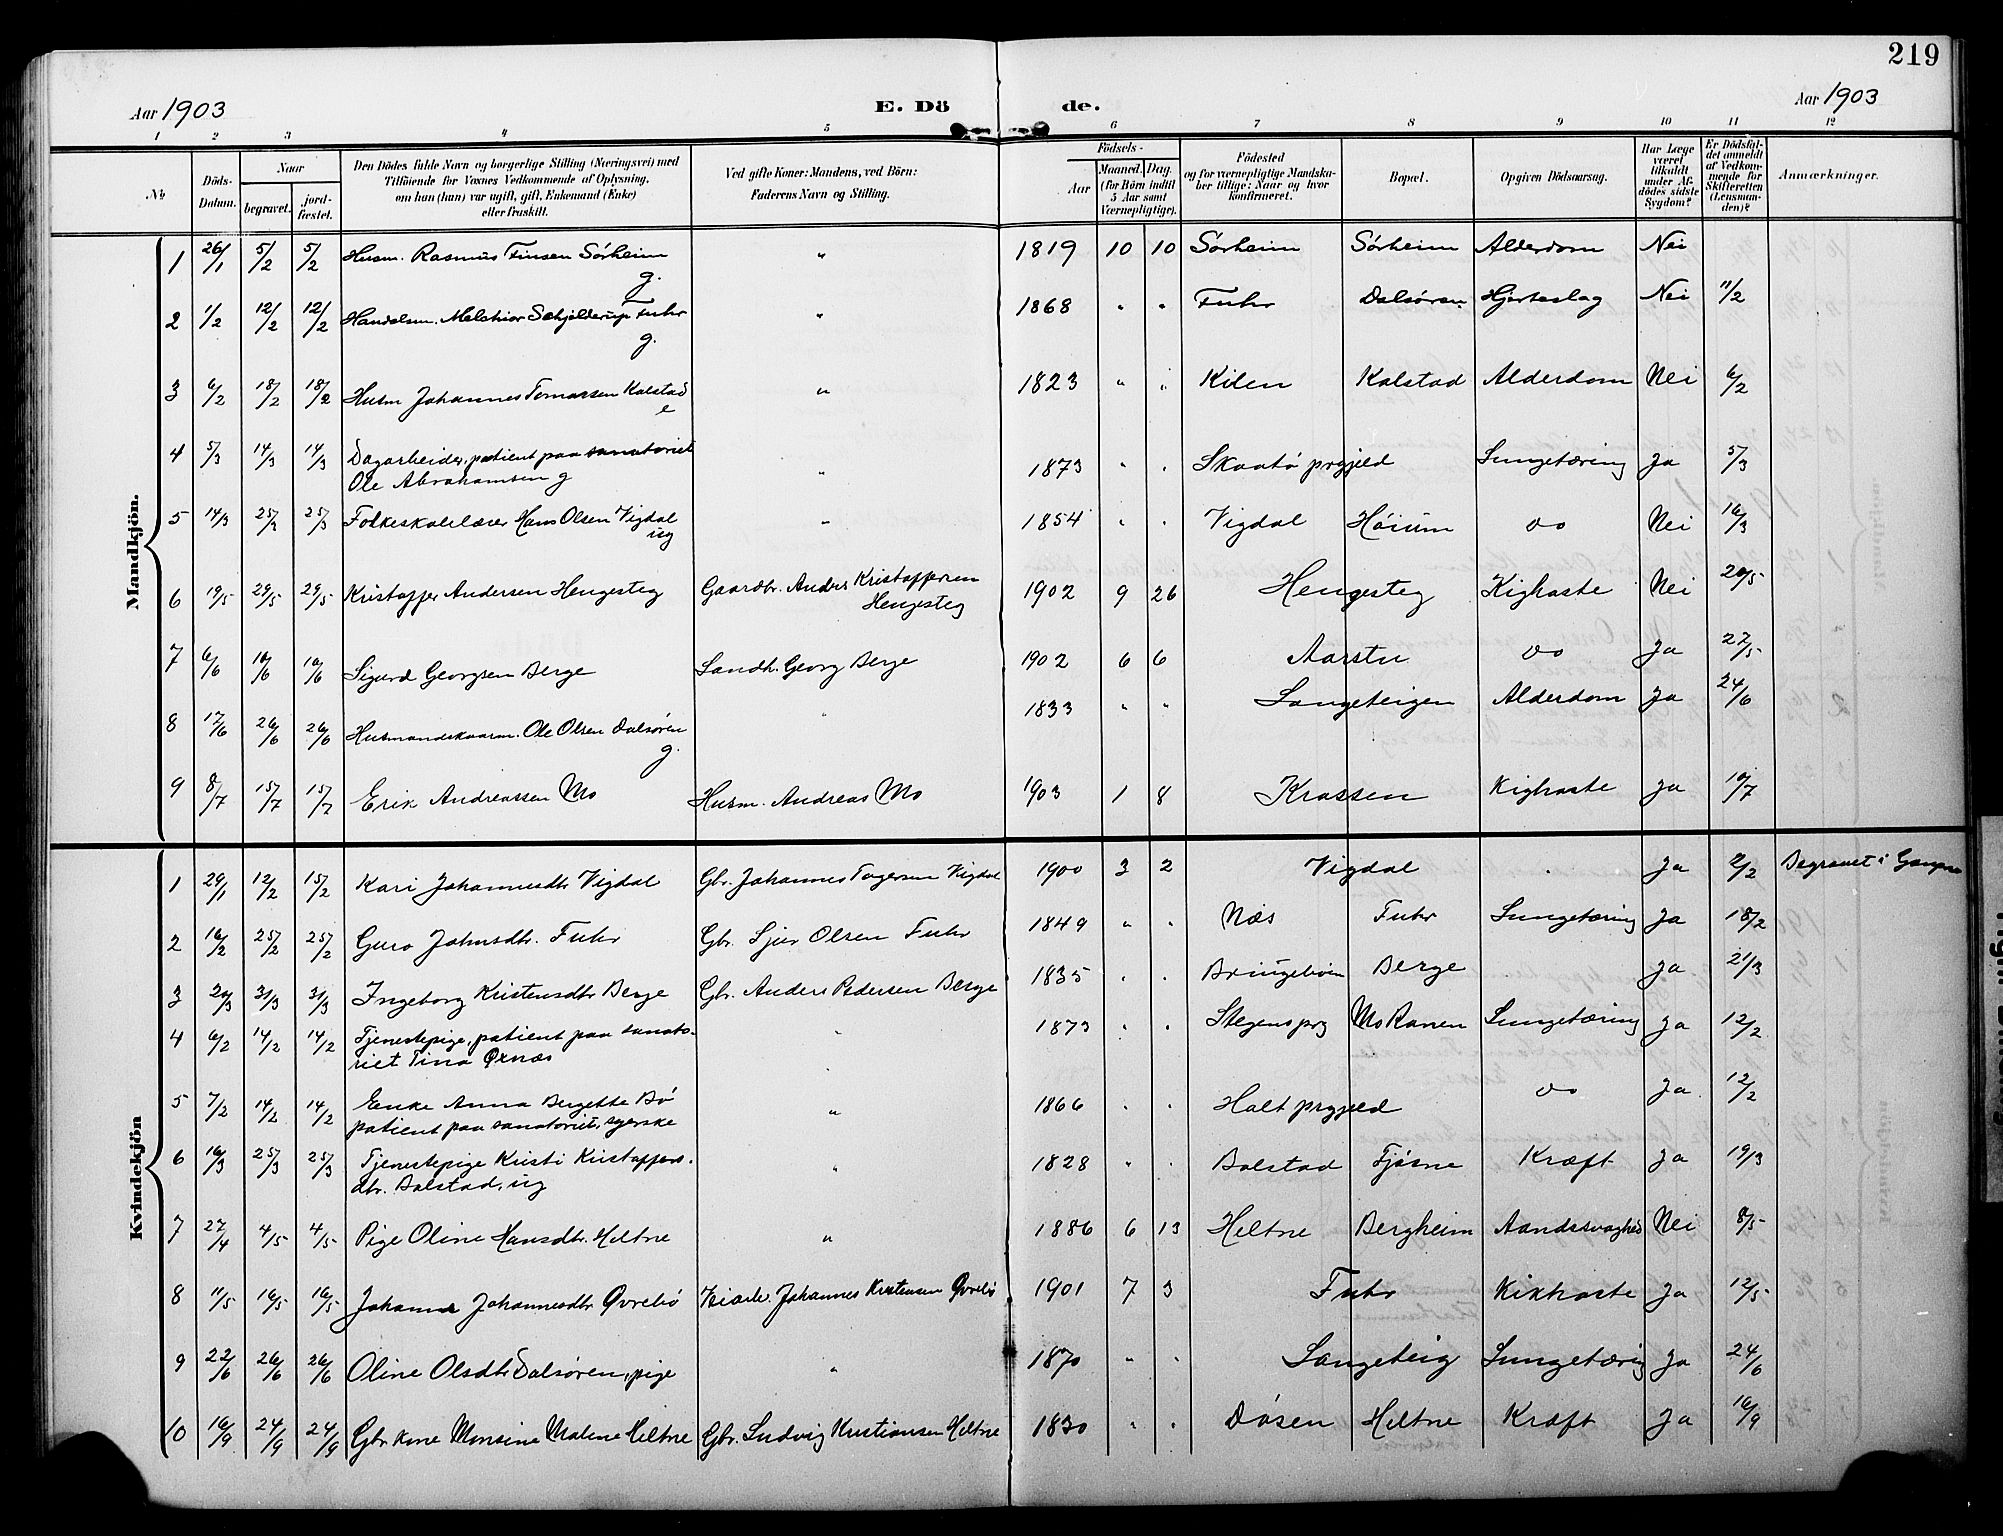 219
Aar 1903 E. Dö de. Aar 1903
1 2 3 4 5 6 7 8 9 10 11 12
No. Döds-Datum. Naar begravet. jordfæstet. Den Dödes fulde Navn og borgerlige Stilling (Næringsvei) med Tilföiende for Voxnes Vedkommende af Oplysning, om han (hun) var ugift, gift, Enkemand (Enke) eller fraskilt. Ved gifte Koner: Mandens, ved Börn: Faderens Navn og Stilling. Födsels- Aar Maaned. Dag. (for Börn indtil 5 Aar samt Værnepligtige). Födested og for værnepligtige Mandskaber tillige: Naar og hvor konfirmeret. Bopæl. Opgiven Dödsaarsag. Har Læge været tilkaldt under Afdödes sidste Sygdom? Er Dödsfaldet anmeldt af Vedkommende for Skifteretten (Lensmanden)? Anmærkninger.
Mandkjön.
1 26/1 5/2 5/2 Husm. Rasmus Finsen Sørheim g. " 1819 10 10 Sørheim Sørheim Alderdom Nei
2 1/2 12/2 12/2 Handelsm. Melchior Schjelderup Fuhr g. " 1868 " " Fuhr Dalsøren Hjerteslag Nei 11/2
3 6/2 18/2 18/2 Husm Johannes Tomassen Kalstad e " 1823 " " Kilen Kalstad Alderdom Nei 6/2
4 5/3 14/3 14/3 Dagarbeider, patient paa sanatoriet
Ole Abrahamsen g " 1873 " " Skaatø prgjeld Lungetæring Ja 5/3
5 14/3 25/3 25/3 Folkeskolelærer Hans Olsen Vigdal ug " 1854 " " Vigdal Høium do Nei 16/3
6 19/5 29/5 29/5 Kristoffer Andersen Hengesteg Gaardbr. Anders Kristoffersen Hengesteg 1902 9 26 Hengesteg Kighoste Nei 20/5
7 6/6 16/6 16/6 Sigurd Georgsen Berge Landh. Georg Berge 1902 6 6 Aarstu do Ja 27/5
8 17/6 26/6 26/6 Husmandskaarm. Ole Olsen Dalsøren g. " 1833 " " Langeteigen Alderdom Ja 24/6
9 8/7 15/7 15/7 Erik Andreassen Mo Husm. Andreas Mo 1903 1 8 Krossen Kighoste Ja 10/7
Kvindekjön
1 29/1 12/2 15/2 Kari Johannesdtr Vigdal Gbr. Johannes Togersen Vigdal 1900 3 2 Vigdal Ja 2/2 Begravet i Gaupne
2 16/2 25/2 25/2 Guro Johnsdtr. Fuhr Gbr. Sjur Olsen Fuhr 1849 " " Næs Fuhr Lungetæring Ja 18/2
3 20/3 31/3 31/3 Ingeborg Kristensdtr Berge Gbr. Anders Pedersen Berge 1835 " " Bringebøen Berge Ja 21/3
4 6/2 14/2 14/2 Tjenestepige, patient paa sanato-
riet Tina Øxnæs " 1873 " " Stegens prg Mo Ranen Lungetæring Ja 12/2
5 7/2 14/2 14/2 Enke Anna Bergette Bø
patient paa sanatoriet, syerske " 1866 " " Holt prgjeld do Ja 12/2
6 16/3 25/3 25/3 Tjenestepige Kristi Kristoffers-
dtr. Bolstad, ug " 1828 " " Bolstad Fjøsne Kræft Ja 19/3
7 27/4 4/5 4/5 Pige Oline Hansdtr. Heltne " 1886 6 13 Heltne Bergheim Aandssvaghed Nei 8/5
8 11/5 16/5 16/5 Johanne Johannesdtr Øvrebø Johannes Kristensen Øvrebø 1901 7 3 Fuhr Kikhoste Ja 12/5
9 22/6 26/6 26/6 Oline Olsdtr Dalsøren, pige " 1870 " " Langeteig Lungetæring Ja 24/6
10 16/9 24/9 24/9 Gbr kone Monsine Malene Heltne Gbr. Ludvig Kristiansen Heltne 1830 " " Døsen Heltne Kræft Ja 16/9